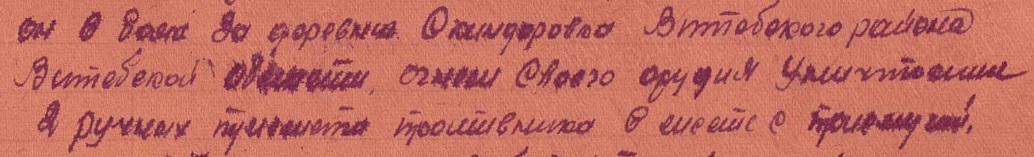 он в боях за деревню Скиндоровка Витебского района
Витебской области, огнем своего орудия уничтожил
2 ручных пулемета противника в месте с прислугой.